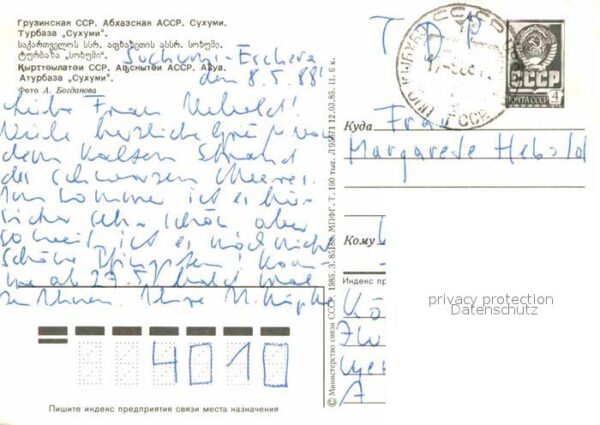 Грузинская ССР. Абхазская АССР. Сухуми.
Турбаза „Сухуми”.
საქართველოს სსრ. აფხაზეთის ასსრ. სოხუმი.
ტურბაზა „სოხუმი”.
Қырҭтәылатәи ССР. Аҧснытәи АССР. Аҟәа.
Атурбаза „Сухуми”.
Фото А. Богданова
Suchumi-Eschera
den 8.5.88
Liebe Frau Hebold!
Viele herzliche Grüße von
dem kalten Strand
des schwarzen Meeres.
Im Sommer ist es
sicher sehr schön aber
soweit ist es noch nicht
Schöne Pfingsten!
ab 27.5.
zu Ihnen. Ihre M.
4010
Пишите индекс предприятия связи места назначения
© Министерство связи СССР. 1985. З. 85188. МПФГ. Т. 100 тыс. Л 12.03.85. Ц. 6 к.
СССР
ПОЧТА СССР
4
Куда Frau
Margarete Hebold
Кому
Индекс пр
Kö
A
privacy protection
Datenschutz